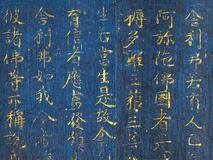 舍利弗若有人已
阿弥陀佛國者是
耨多羅三藐三菩
生若當生是故舍
有信者應當發願
舍利弗如我今
彼諸佛等亦稱說